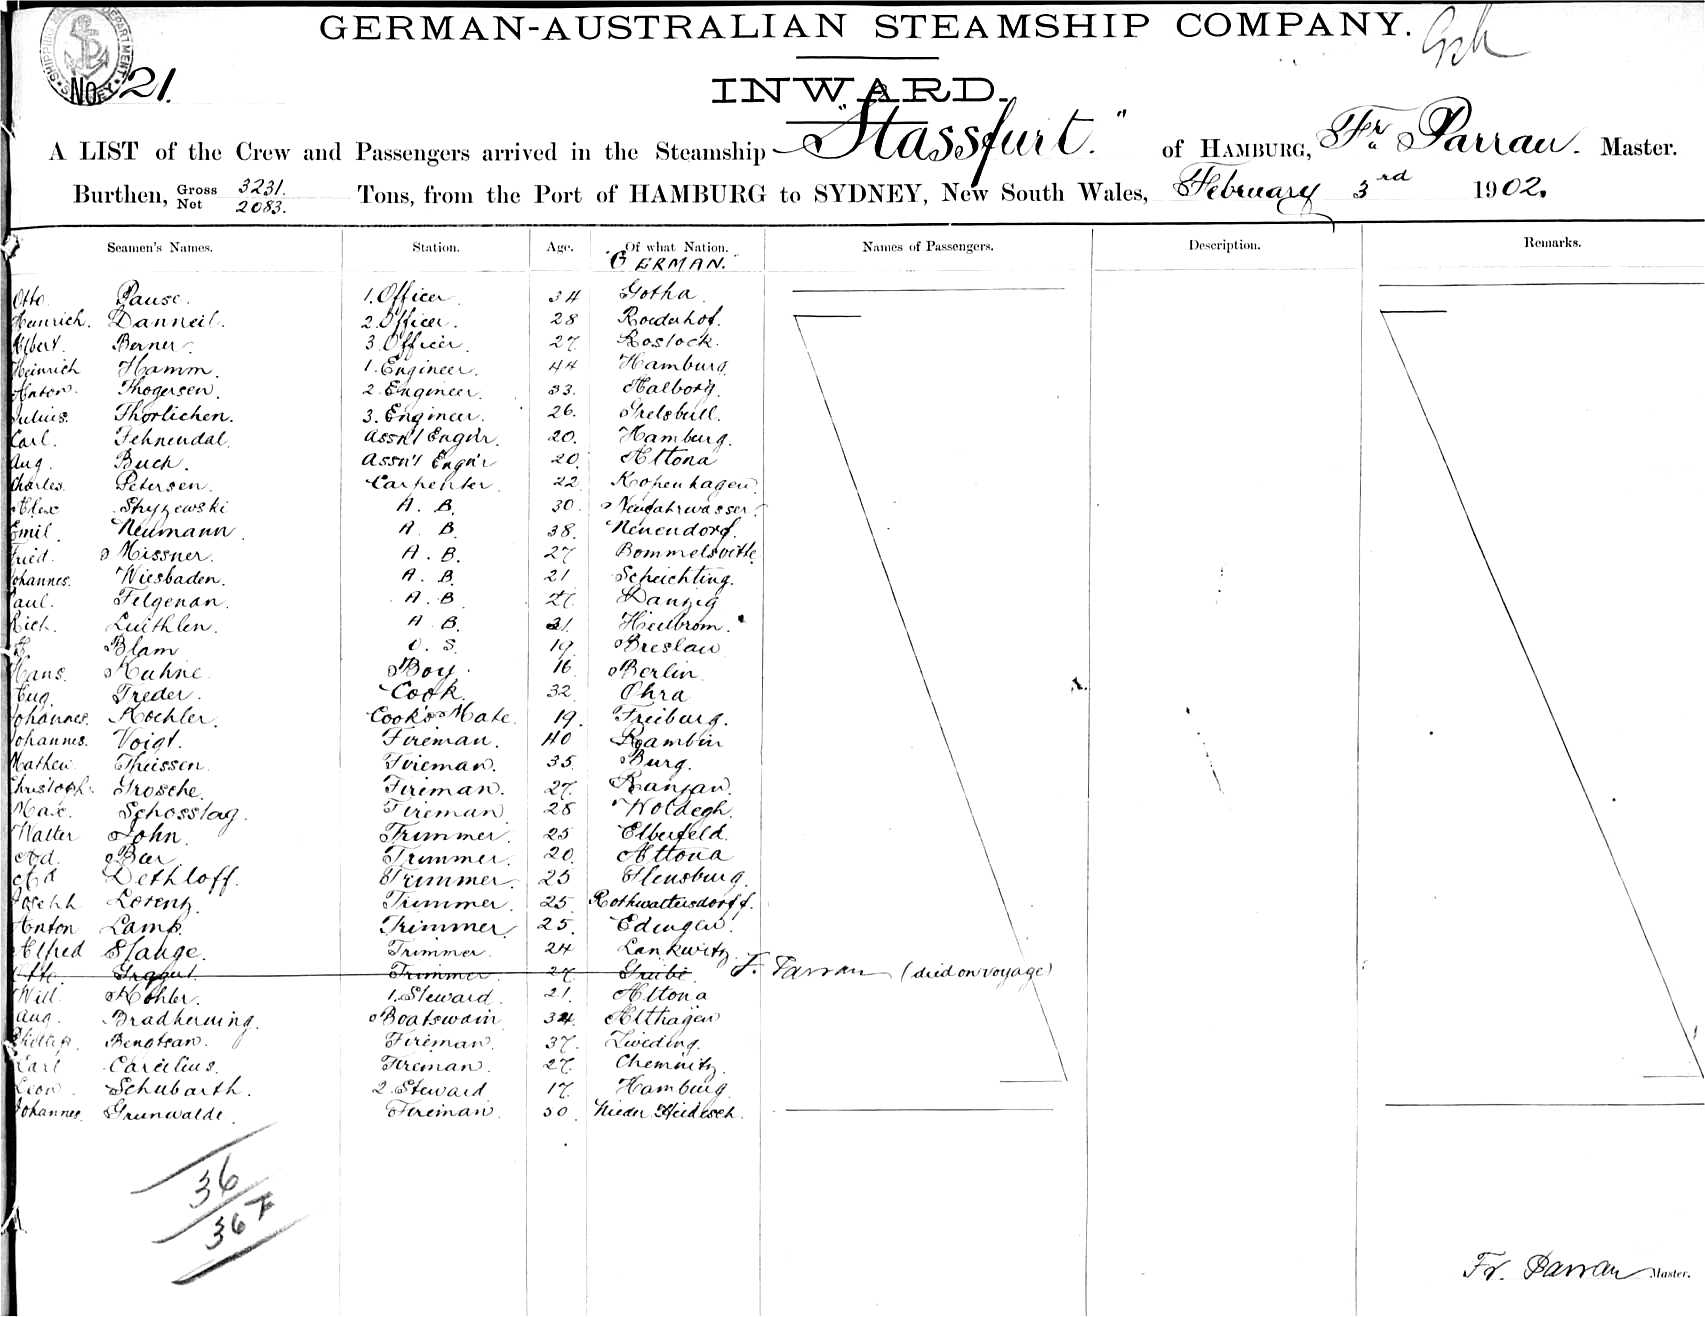 GERMAN-AUSTRALIAN STEAMSHIP COMPANY.
No. 21.
INWARD.
A LIST of the Crew and Passengers arrived in the Steamship "Stassfurt." of HAMBURG, Fr. Parrau. Master.
Burthen, Gross 3231. Net 2083. Tons, from the Port of HAMBURG to SYDNEY, New South Wales, February 3rd 1902.
Seamen's Names. Station. Age. Of what Nation. Names of Passengers. Description. Remarks.
"GERMAN."
Otto Pause. 1. Officer. 34 Gotha.
Heinrich. Danneil. 2. Officer. 28 Roederhof.
Albert. Berner. 3. Officer. 27. Rostock.
Heinrich Hamm. 1. Engineer. 44 Hamburg.
Anton. Thogersen. 2. Engineer. 33. Aalborg.
Julius. Thorlichen. 3. Engineer. 26.
Carl. Fehnendal. Assn't Engin'r. 20. Hamburg.
Aug. Buch. Assn't Engn'r 20. Altona
Charles. Petersen. Carpenter. 22 Kopenhagen.
Alex Skyzewski A. B. 30. Neufahrwasser.
Emil. Neumann. A. B. 38. Neuendorf.
Fried. Missner. A. B. 27 Bommelsvitte
Johannes. Wiesbaden. A. B. 21 Scheichting.
Paul. Felgenan. A. B. 27. Danzig
Rich. Luithlen. A. B. 31. Heilbrom.
Blam O. S. 19. Breslau
Hans. Kuhne. Boy. 16. Berlin
Aug. Treder. Cook. 32 Ohra
Johannes. Kochler. Cook's Mate. 19. Freiburg.
Johannes. Voigt. Fireman. 40 Rambin
Mathew Theissen. Fireman. 35. Burg.
Christoph. Grosche. Fireman. 27. Ranzau.
Max. Schosstag. Fireman. 28 Woldegk.
Walter John. Trimmer. 25 Elberfeld.
Ad. Bar Trimmer. 20. Altona
Ad Dethloff. Trimmer. 25 Flensburg.
Joseph Lorenz. Trimmer. 25. Rothwaltersdorff.
Anton Lamp. Trimmer. 25. Edingen.
Alfred Stange. Trimmer. 24 Lankwitz.
Otto. Trimmer. 27 F. Parrau (died on voyage)
Will. Köhler. 1. Steward. 21. Altona
Aug. Bradhering. Boatswain 34. Althagen
Phillip. Bengtsan. Fireman. 37. Liveding.
Karl Carcilius. Fireman. 27. Chemnitz.
Leon. Schubarth. 2. Steward. 17. Hamburg
Johannes. Grunwalde. Fireman. 30.
36
36
Fr. Parrau Master.